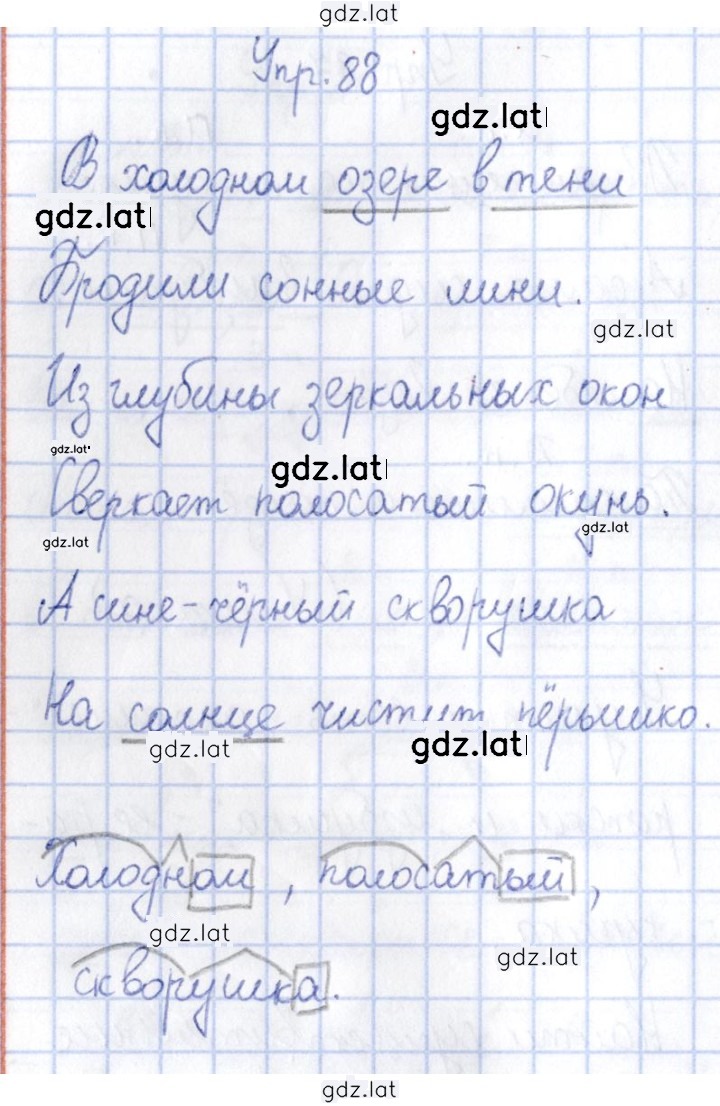 gdz.lat
Упр. 88
gdz.lat
В холодном озере в тени
gdz.lat
Бродили сонные лини.
gdz.lat
Из глубины зеркальных окон
gdz.lat
gdz.lat
Сверкает полосатый окунь.
gdz.lat
gdz.lat
А сине-чёрный скворушка
На солнце чистит пёрышко.
gdz.lat
gdz.lat
Холодном, полосатый,
gdz.lat
gdz.lat
скворушка.
gdz.lat